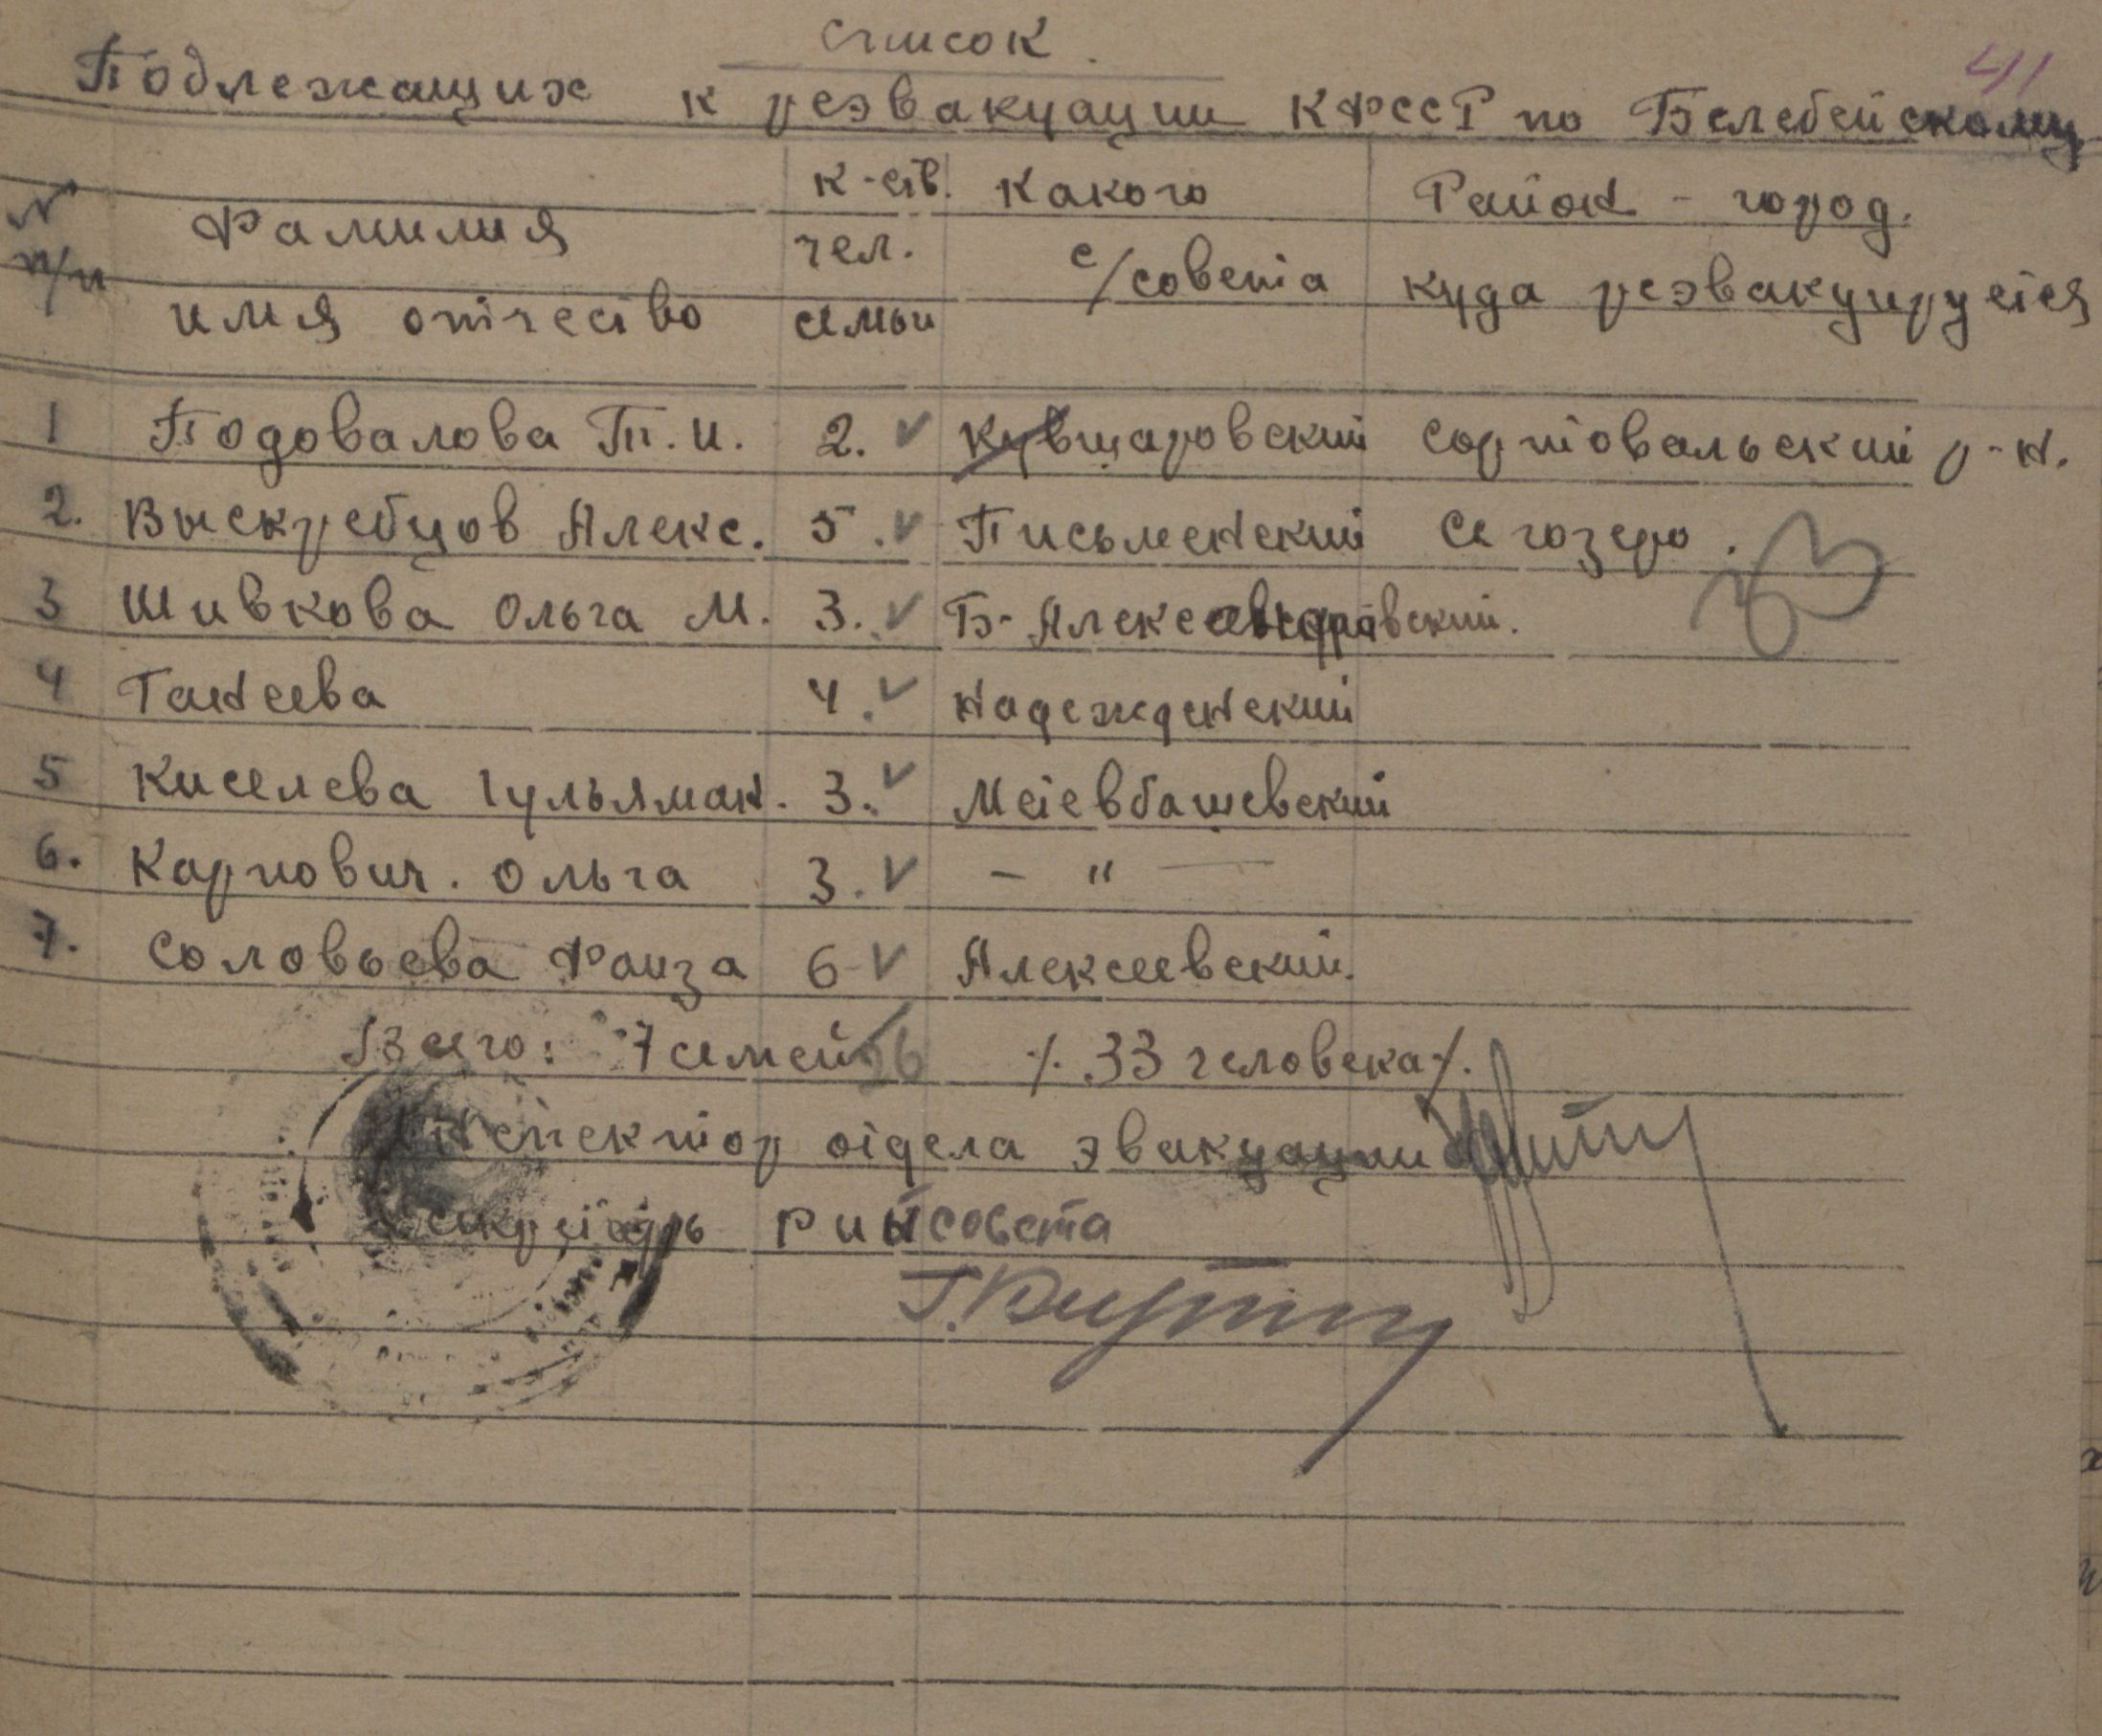 список.
41
Подлежащих к реэвакуации КФССР по Белебейскому
№ п/п
Фамилия имя отчество
к-ств. чел. семьи
Какого с/совета
Район - город. куда реэвакуируется
1 Подовалова П. И. 2. V шаровский Сортовальский р-н.
2. Выскребцов Алекс. 5. V Письменский Сегозеро.
3 Шивкова Ольга М. 3. V Б-Александровский.
4 Ганеева 4. V Надежденский
5 Киселева Гульяман. 3. V Метевбашевский
6. Карпович. Ольга 3. V - " -
7. Соловьева Фаиза 6 V Алексеевский.
Всего: 7 семей 26 /. 33 человека /.
Инспектор отдела эвакуации
Секретарь райсовета